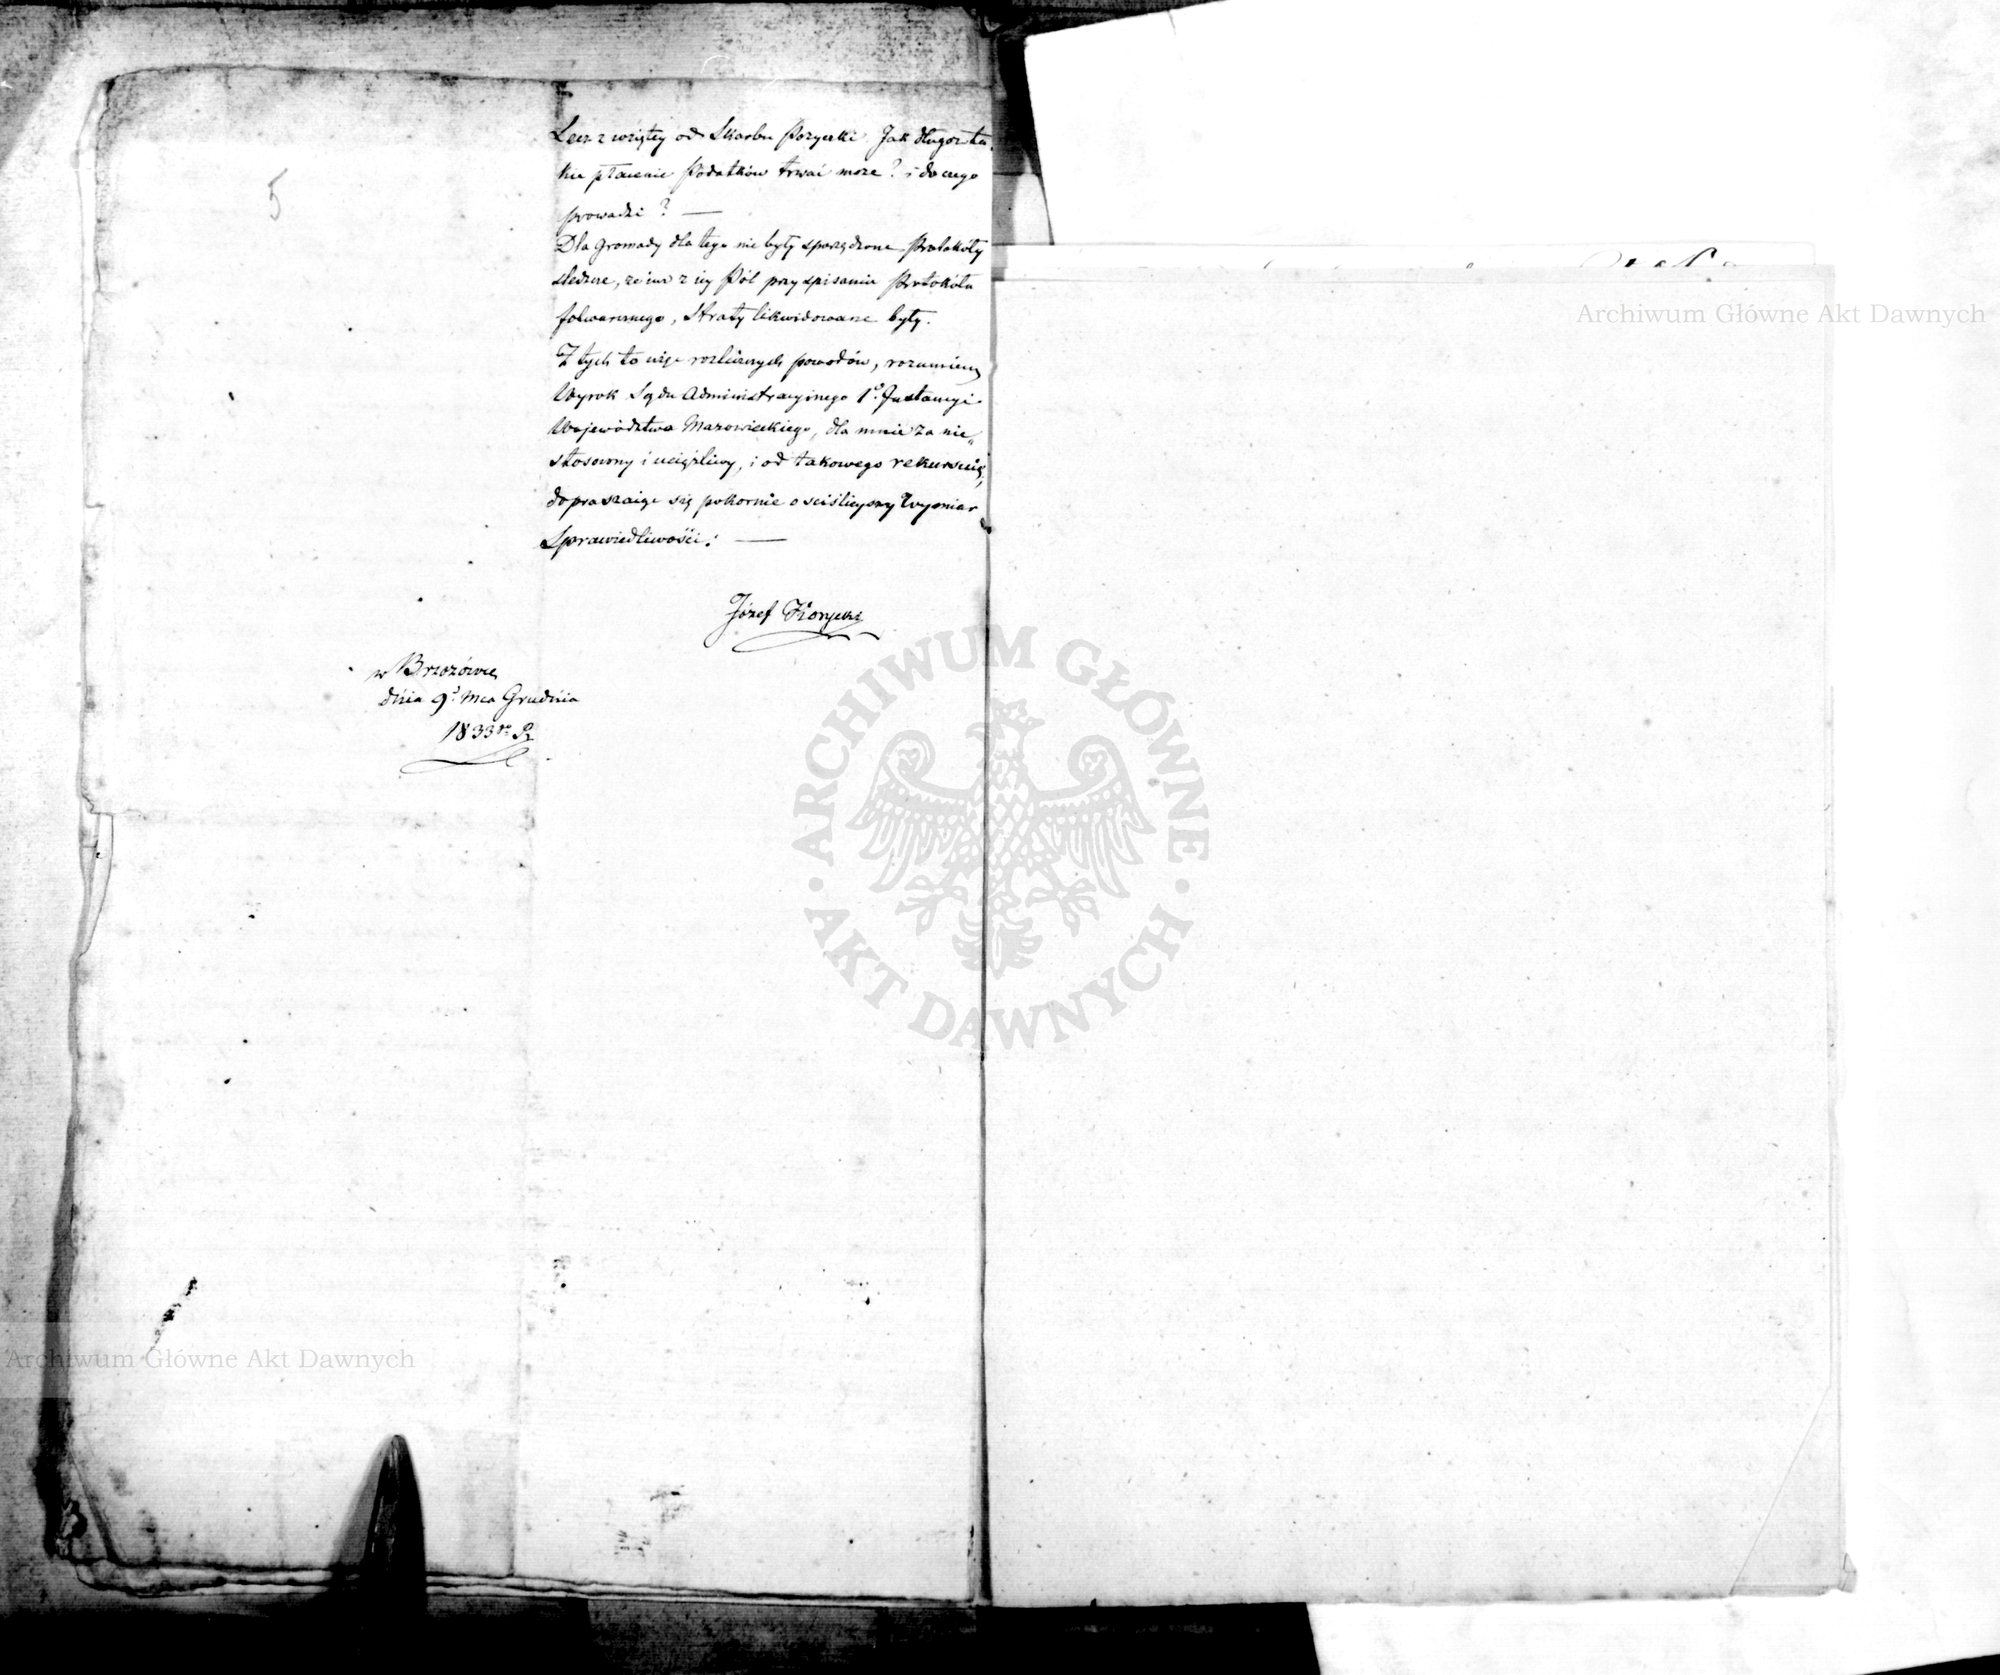 5
Lecz z wziętey od Skarbu Pożyczki. Jak długoż ta-
kie płacenie Podatków trwać może? i do czego
prowadzi? —
Dla Gromady dla tego nie były sporządzone Protokóły
śledcze, że iuż z iey Pól przy spisaniu Protokółu
folwarcznego, Straty likwidowane były.
Z tych to więc rozlicznych powodów, rozumiem
Wyrok Sądu Administracyinego 1º Instancyi
Województwa Mazowieckiego, dla mnie za nie„
stosowny i uciążliwy, i od takowego rekursuię,
dopraszaiąc się pokornie o ściśleyszy Wymiar
Sprawiedliwości: —
Józef
w Brzozówce
dnia 9º Mca Grudnia
1833 R
Archiwum Główne Akt Dawnych
ARCHIWUM GŁÓWNE AKT DAWNYCH
Archiwum Główne Akt Dawnych